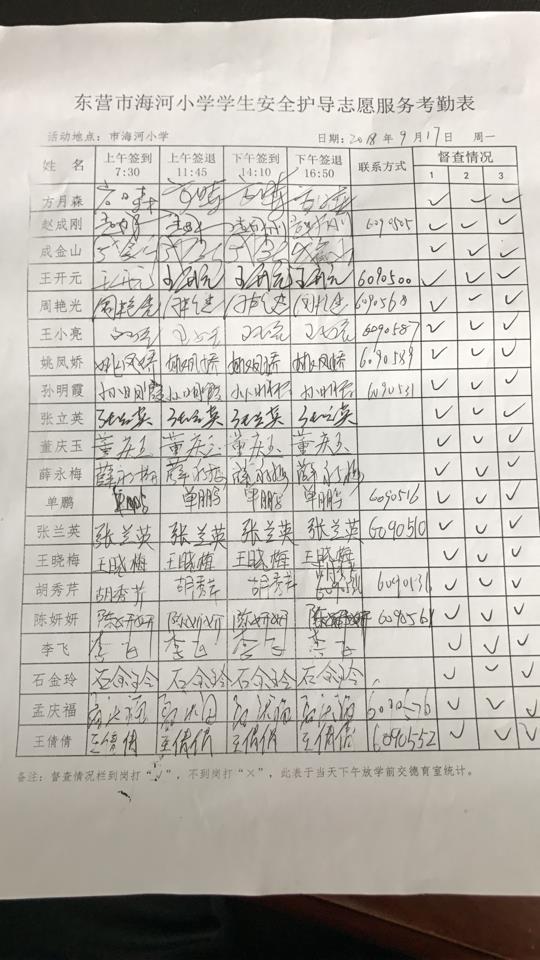 东营市海河小学学生安全护导志愿服务考勤表
活动地点：市海河小学 日期：2018年9月17日 周一
姓 名 上午签到 7:30 上午签退 11:45 下午签到 14:10 下午签退 16:50 联系方式 督查情况 1 2 3
方月森 ✓ ✓ ✓
赵成刚 6090505 ✓ ✓ ✓
成金山 ✓ ✓ ✓
王开元 王开元 王开元 王开元 王开元 6090500 ✓ ✓ ✓
周艳光 周艳光 周艳光 周艳光 周艳光 6090568 ✓ ✓ ✓
王小亮 6090587 ✓ ✓ ✓
姚凤娇 姚凤娇 姚凤娇 姚凤娇 姚凤娇 6090539 ✓ ✓ ✓
孙明霞 孙明霞 孙明霞 孙明霞 孙明霞 6090531 ✓ ✓ ✓
张立英 张立英 张立英 张立英 张立英 ✓ ✓ ✓
董庆玉 董庆玉 董庆玉 董庆玉 董庆玉 ✓ ✓ ✓
薛永梅 薛永梅 薛永梅 薛永梅 薛永梅 ✓ ✓ ✓
单鹏 单鹏 单鹏 单鹏 单鹏 6090516 ✓ ✓ ✓
张兰英 张兰英 张兰英 张兰英 张兰英 6090510 ✓ ✓ ✓
王晓梅 王晓梅 王晓梅 王晓梅 王晓梅 ✓ ✓ ✓
胡秀芹 胡秀芹 胡秀芹 胡秀芹 6090536 ✓ ✓ ✓
陈妍妍 陈妍妍 陈妍妍 陈妍妍 陈妍妍 6090561 ✓ ✓ ✓
李飞 李飞 李飞 李飞 李飞 ✓ ✓ ✓
石金玲 石金玲 石金玲 石金玲 石金玲 ✓ ✓ ✓
孟庆福 ✓ ✓ ✓
王倩倩 王倩倩 王倩倩 王倩倩 王倩倩 6090552 ✓ ✓ ✓
备注：督查情况栏到岗打“✓”，不到岗打“×”，此表于当天下午放学前交德育室统计。